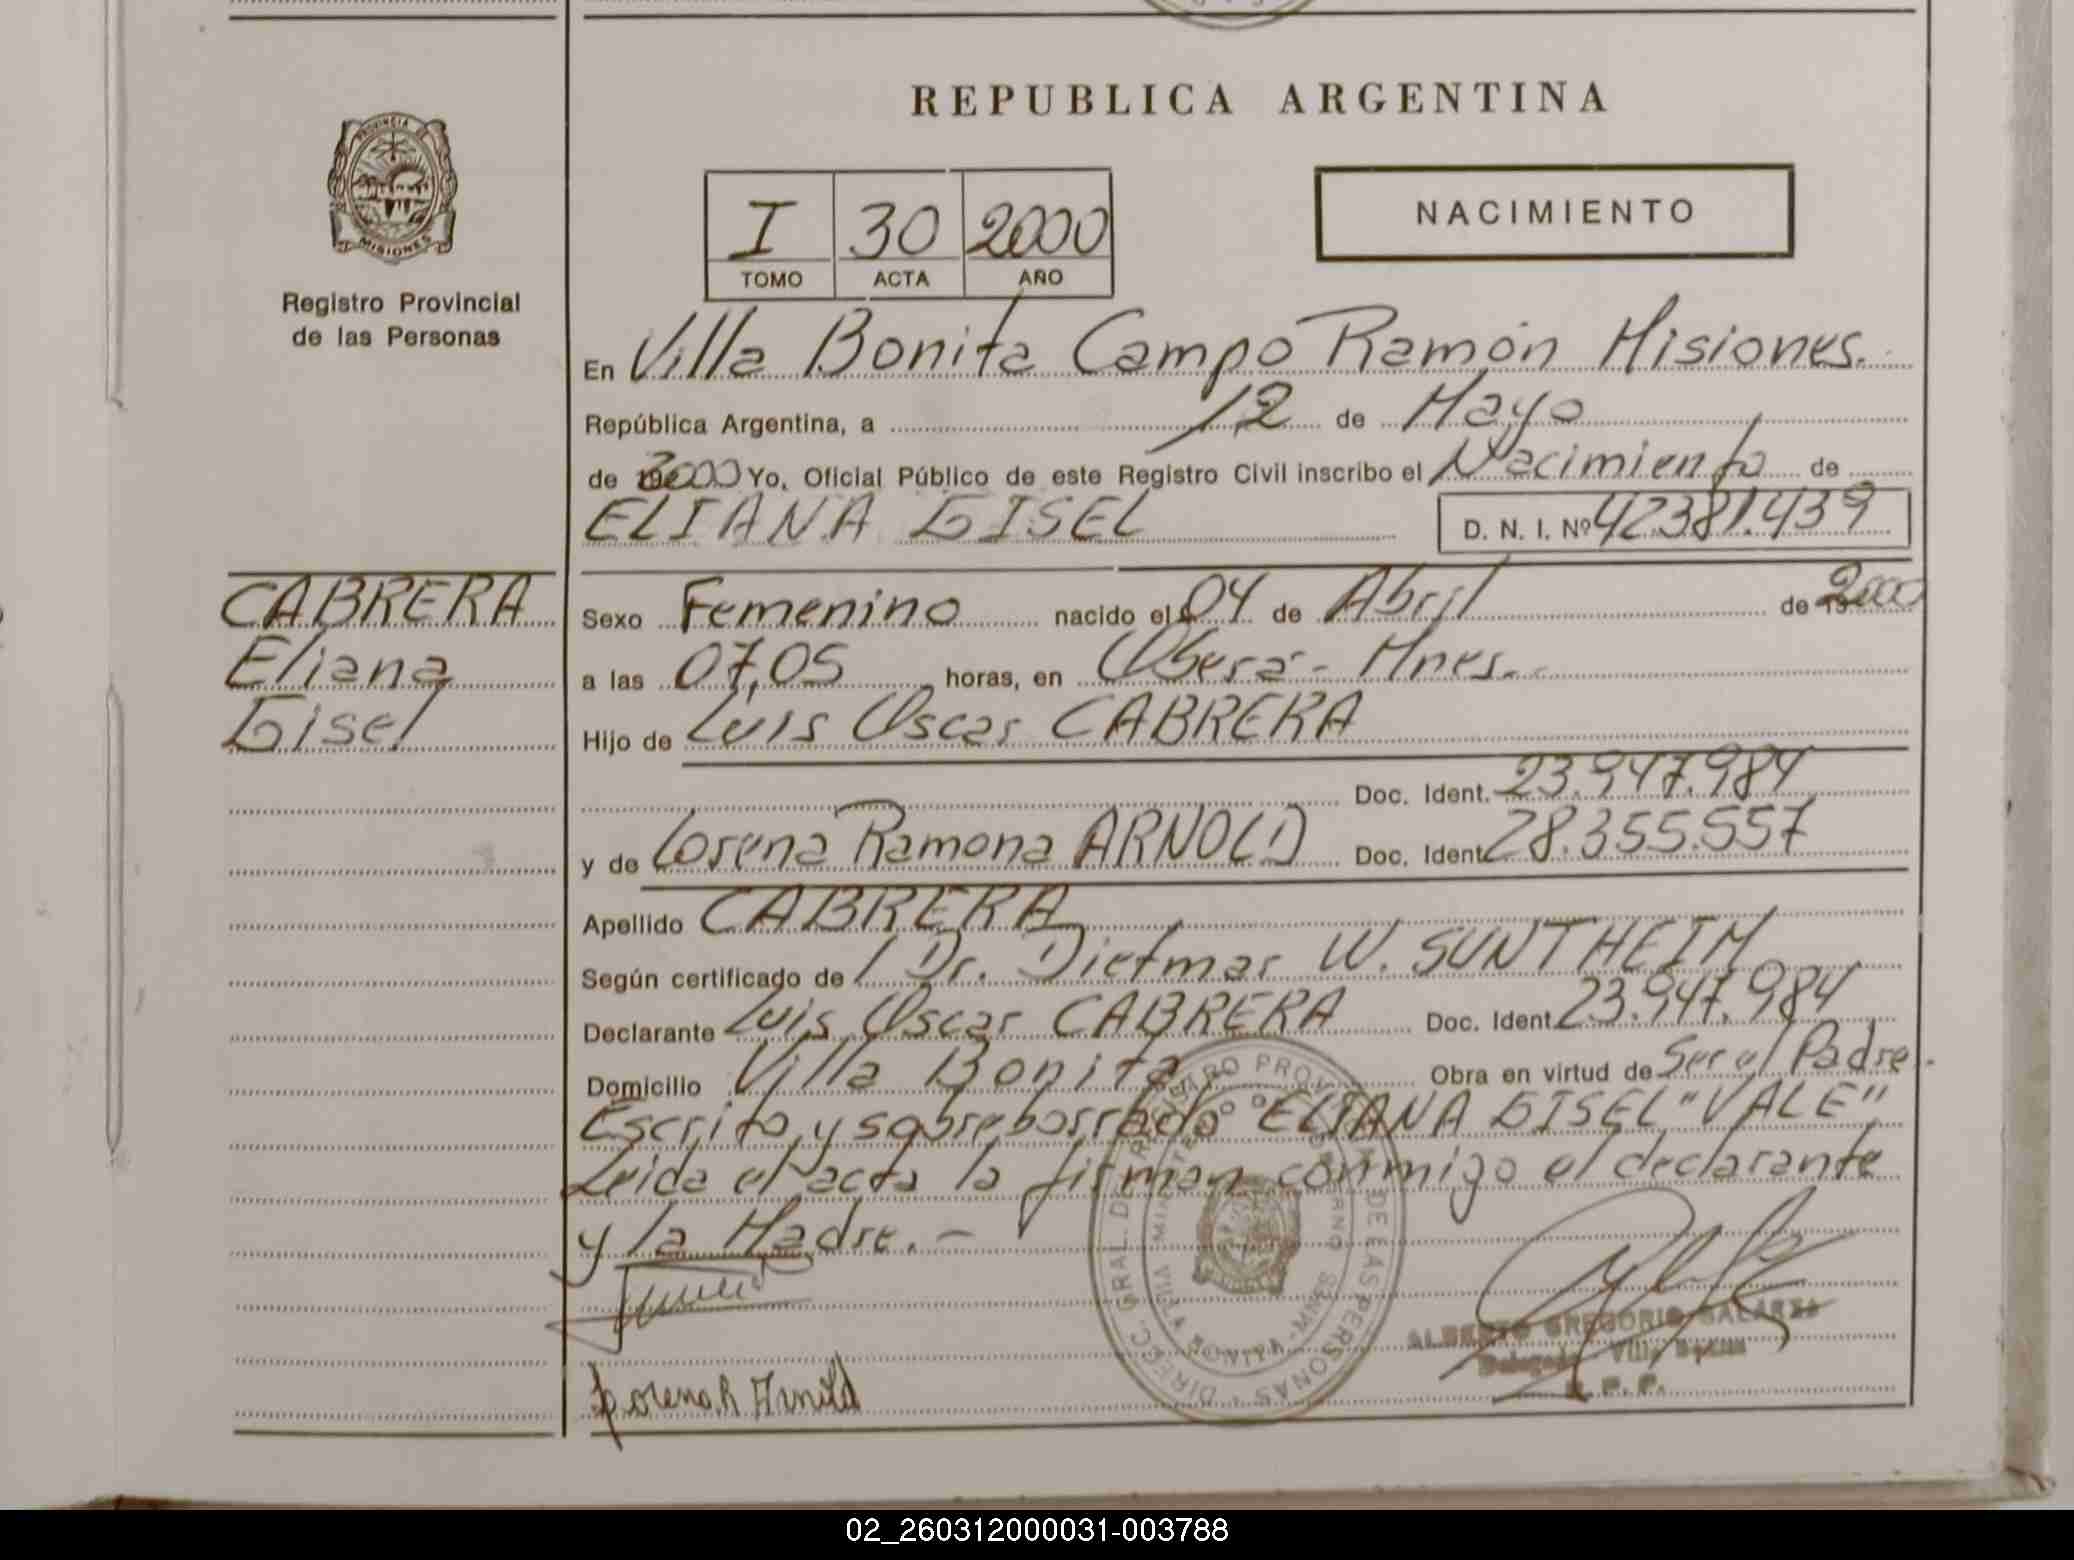 REPUBLICA ARGENTINA
PROVINCIA DE
MISIONES
Registro Provincial
de las Personas
I 30 2000
TOMO ACTA AÑO
NACIMIENTO
En Villa Bonita Campo Ramón Misiones.
República Argentina, a 12 de Mayo
de 2000 Yo, Oficial Público de este Registro Civil inscribo el Nacimiento de
ELIANA GISEL D. N. I. Nº 42381.439
CABRERA
Eliana
Gisel
Sexo Femenino nacido el 04 de Abril de 2000
a las 07,05 horas, en Oberá- Mnes.-
Hijo de Luis Oscar CABRERA
Doc. Ident. 23.947.984
y de Lorena Ramona ARNOLD Doc. Ident. 28.355.557
Apellido CABRERA
Según certificado de / Dr. Dietmar W. SUNTHEIM
Declarante Luis Oscar CABRERA Doc. Ident. 23.947.984
Domicilio Villa Bonita Obra en virtud de Ser el Padre.-
Escrito y sobreborrado "ELIANA GISEL "VALE"
Leida el acta la firman conmigo el declarante
y la Madre.-
DIRECC. GRAL. DEL REGISTRO PROVINCIAL DE LAS PERSONAS
VILLA BONITA - MNES
ALBERTO GREGORIO GALARZA
Delegado Villa Bonita
R. P. P.
Lorena R Arnold
02_260312000031-003788